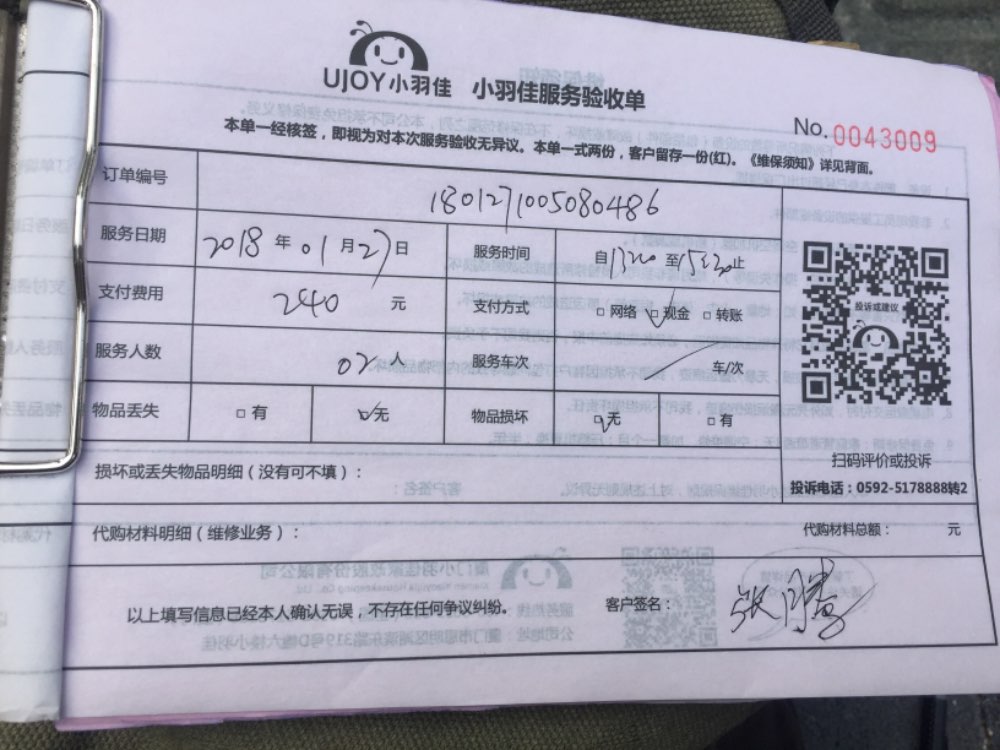 UJOY小羽佳 小羽佳服务验收单
No. 0043009
本单一经核签，即视为对本次服务验收无异议。本单一式两份，客户留存一份(红)。《维保须知》详见背面。
订单编号 1801271005080486
服务日期 2018 年 01 月 27 日 服务时间 自 至 15:30 止
支付费用 240 元 支付方式 □ 网络 □ 现金 □ 转账
投诉或建议
服务人数 02人 服务车次 车/次
物品丢失 □ 有 □ 无 物品损坏 □ 无 □ 有
扫码评价或投诉
投诉电话：0592-5178888转2
损坏或丢失物品明细（没有可不填）：
代购材料明细（维修业务）： 代购材料总额： 元
以上填写信息已经本人确认无误，不存在任何争议纠纷。 客户签名： 张